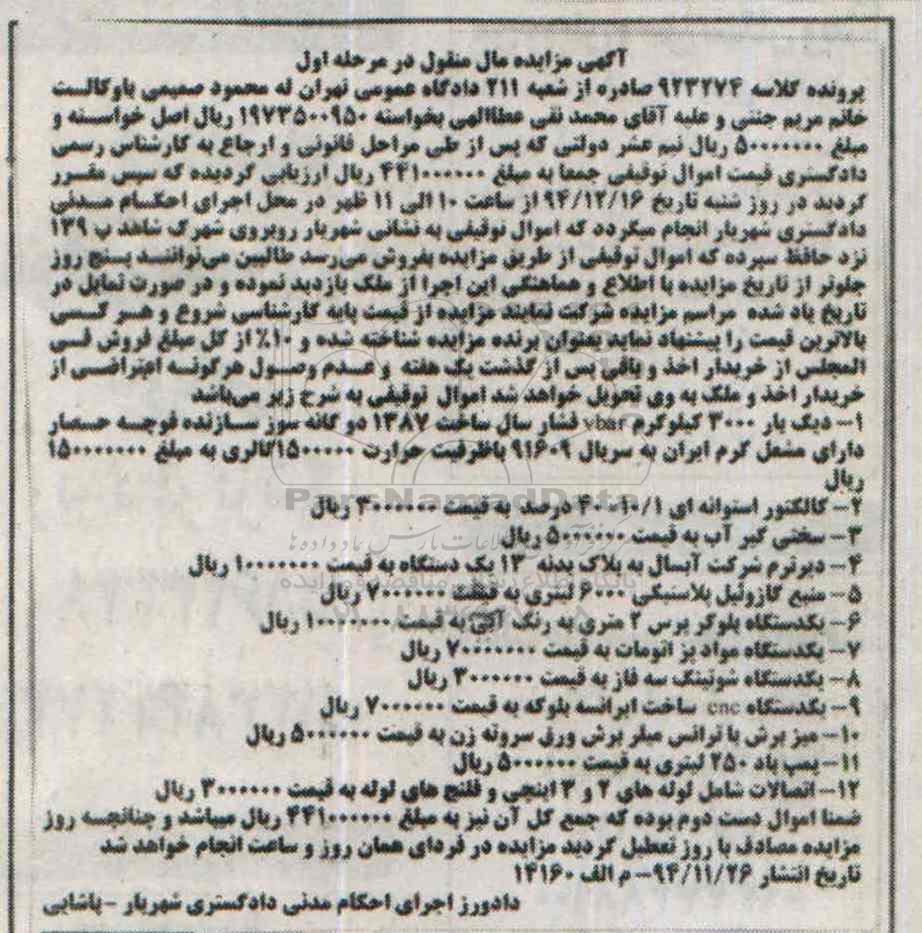 آگهی مزایده مال منقول در مرحله اول
پرونده کلاسه ۹۲۳۲۷۴ صادره از شعبه ۲۱۱ دادگاه عمومی تهران له محمود صمیمی باوکالست
خانم مریم جنتی و علیه آقای محمد تقی عطاالهی بخواسته ۱۹۷۳۵۰۰۹۵۰ ریال اصل خواسته و
مبلغ ۵۰۰۰۰۰۰۰ ریال نیم عشر دولتی که پس از طی مراحل قانونی و ارجاع به کارشناس رسمی
دادگستری قیمت اموال توقیفی جمعا به مبلغ ۴۴۱۰۰۰۰۰۰ ریال ارزیابی گردیده که سپس مقرر
گردید در روز شنبه تاریخ ۹۴/۱۲/۱۶ از ساعت ۱۰ الی ۱۱ ظهر در محل اجرای احکام مدنی
دادگستری شهریار انجام میگردد که اموال توقیفی به نشانی شهریار روبروی شهرک شاهد پ ۱۳۹
نزد حافظ سپرده که اموال توقیفی از طریق مزایده بفروش می‌رسد طالبین می‌توانند پنج روز
جلوتر از تاریخ مزایده با اطلاع و هماهنگی این اجرا از ملک بازدید نموده و در صورت تمایل در
تاریخ یاد شده مراسم مزایده شرکت نمایند مزایده از قیمت پایه کارشناسی شروع و هر کسی
بالاترین قیمت را پیشنهاد نماید بعنوان برنده مزایده شناخته شده و ۱۰٪ از کل مبلغ فروش فی
المجلس از خریدار اخذ و باقی پس از گذشت یک هفته و عدم وصول هرگونه اعتراضی از
خریدار اخذ و ملک به وی تحویل خواهد شد اموال توقیفی به شرح زیر می‌باشد
۱- دیگ بار ۳۰۰۰ کیلوگرم vbar فشار سال ساخت ۱۳۸۷ دو گانه سوز سازنده قوچه حصار
دارای مشعل گرم ایران به سریال ۹۱۶۰۹ باظرفیت حرارت ۱۵۰۰۰۰۰کالری به مبلغ ۱۵۰۰۰۰۰۰۰
ریال
ParsNamadData
۲- کالکتور استوانه ای ۱۰/۱-۴۰ درصد به قیمت ۳۰۰۰۰۰۰ ریال
۳- سختی گیر آب به قیمت ۵۰۰۰۰۰۰ ریال
۴- دیرترم شرکت آبسال به پلاک بدنه ۱۳ یک دستگاه به قیمت ۱۰۰۰۰۰۰۰ ریال
۵- منبع گازوئیل پلاستیکی ۶۰۰۰ لیتری به قیمت ۷۰۰۰۰۰۰ ریال
۶- یکدستگاه بلوکر پرس ۲ متری به رنگ آبی به قیمت ۱۰۰۰۰۰۰۰۰ ریال
۷- یکدستگاه مواد پز اتومات به قیمت ۷۰۰۰۰۰۰۰ ریال
۸- یکدستگاه شوتینگ سه فاز به قیمت ۳۰۰۰۰۰۰ ریال
۹- یکدستگاه cnc ساخت ایرانسه بلوکه به قیمت ۷۰۰۰۰۰۰ ریال
۱۰- میز برش با ترانس میلر برش ورق سروته زن به قیمت ۵۰۰۰۰۰۰ ریال
۱۱- پمپ باد ۲۵۰ لیتری به قیمت ۵۰۰۰۰۰۰ ریال
۱۲- اتصالات شامل لوله های ۲ و ۳ اینچی و فلنج های لوله به قیمت ۳۰۰۰۰۰۰ ریال
ضمنا اموال دست دوم بوده که جمع کل آن نیز به مبلغ ۴۴۱۰۰۰۰۰۰ ریال میباشد و چنانچه روز
مزایده مصادف با روز تعطیل گردید مزایده در فردای همان روز و ساعت انجام خواهد شد
تاریخ انتشار ۹۴/۱۱/۲۶- م الف ۱۴۱۶۰
دادورز اجرای احکام مدنی دادگستری شهریار - پاشایی